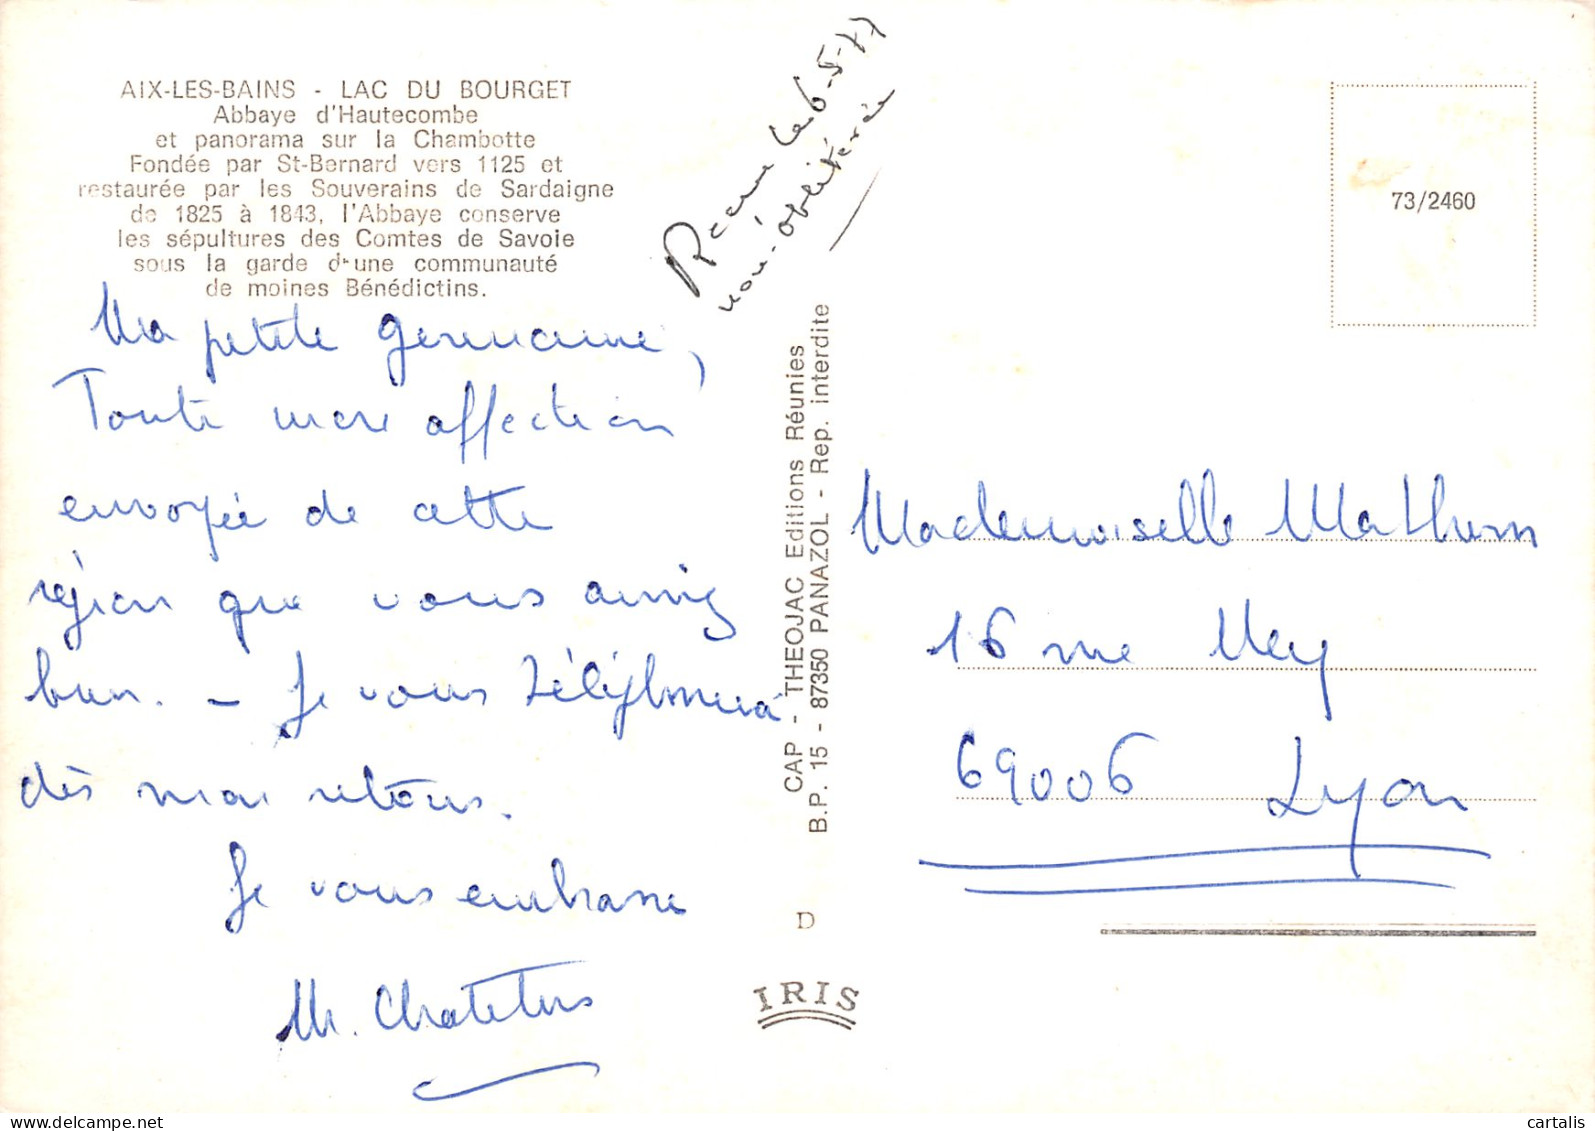 AIX-LES-BAINS - LAC DU BOURGET
Abbaye d'Hautecombe
et panorama sur la Chambotte
Fondée par St-Bernard vers 1125 et
restaurée par les Souverains de Sardaigne
de 1825 à 1843, l'Abbaye conserve
les sépultures des Comtes de Savoie
sous la garde d'une communauté
de moines Bénédictins.
Ma petite Germaine,
Toute mon affection
envoyée de cette
région que vous aimiez
bien. - Je vous téléphonerai
dès mon retour.
Je vous embrasse
M.
Reçue le 6-5-77
non-oblitérée
CAP - THEOJAC Editions Réunies
B.P. 15 - 87350 PANAZOL - Rep. interdite
D
IRIS
73/2460
Mademoiselle
16 rue Ney
69006 Lyon
delcampe.net
cartalis